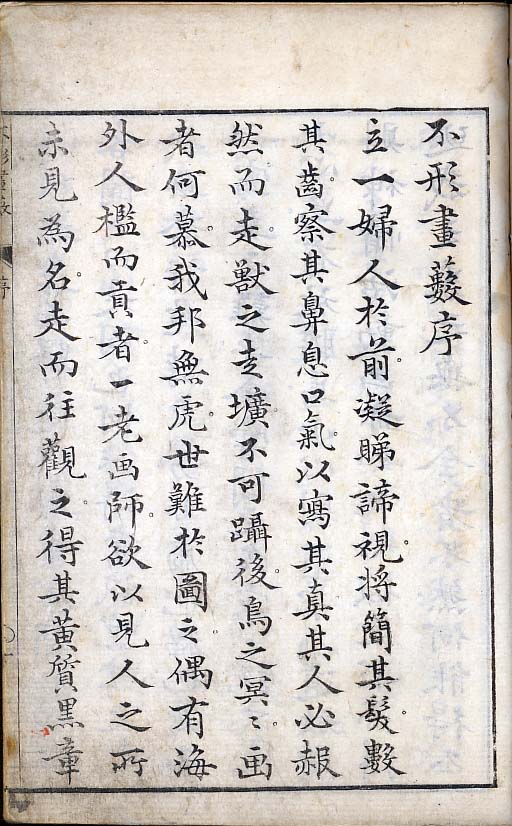 不形畫藪序
立一婦人於前。凝睇諦視。將簡其髮。數
其齒。察其鼻息口氣。以寫其真。其人必赧
然而走。獸之走壙。不可躡後。鳥之冥〻。画
者何慕。我邦無虎。世難於圖之。偶有海
外人檻而貢者。一老画師。欲以見人之所
未見為名。走而往觀之。得其黃質黑章